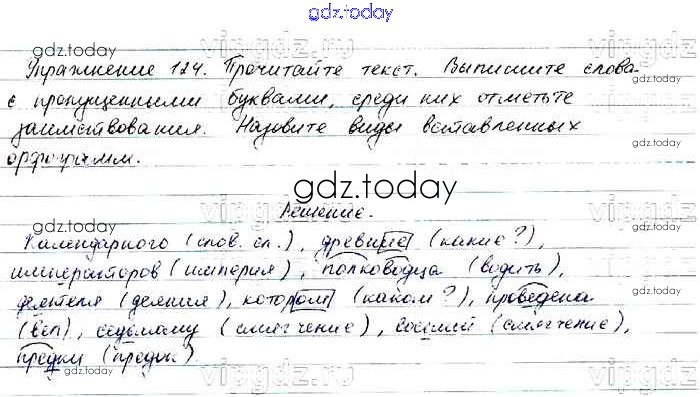 gdz.today
vipgdz.ru
gdz.today gdz.today
Упражнение 124. Прочитайте текст. Выпишите слова
с пропущенными буквами, среди них отметьте
заимствования. Назовите виды вставленных
орфограмм.
gdz.today
vipgdz.ru
Решение.
Календарного (слов. сл.), древние (какие?),
императоров (империя), полководца (водить),
деятеля (деяния), котором (каком?), проведена
gdz.today gdz.today
(вёл), седьмому (смягчение), восьмой (смягчение),
предки (предок).
gdz.today
vipgdz.ru